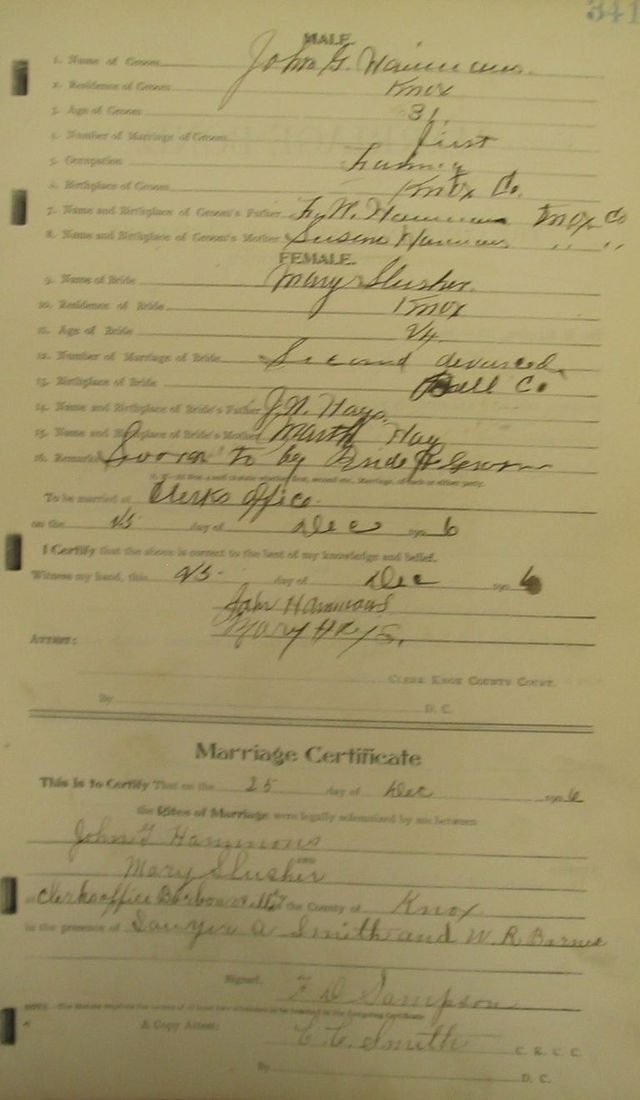 341
MALE.
1. Name of Groom John G. Hammons
2. Residence of Groom Knox
3. Age of Groom 31
4. Number of Marriage of Groom first
5. Occupation
6. Birthplace of Groom Knox Co.
7. Name and Birthplace of Groom's Father Hammons Knox Co
8. Name and Birthplace of Groom's Mother Susan Hammons " "
FEMALE.
9. Name of Bride Mary Slusher
10. Residence of Bride Knox
11. Age of Bride 24
12. Number of Marriage of Bride Second devorced
13. Birthplace of Bride Bell Co
14. Name and Birthplace of Bride's Father J. W. Hays
15. Name and Birthplace of Bride's Mother Marth Hay
16. Remarks Sworn to by Bride & Groom
To be married at Clerks Office
on the 25 day of Dec 1906
I Certify that the above is correct to the best of my knowledge and belief.
Witness my hand, this 25 day of Dec 1906
John Hammons
Mary Hays.
ATTEST:
CLERK KNOX COUNTY COURT.
By D. C.
Marriage Certificate
This is to Certify That on the 25 day of Dec 1906
the Rites of Marriage were legally solemnized by me between
John G Hammons
and
Mary Slusher
at Clerks office Barbourville in the County of Knox
in the presence of Sawyer A Smith and W. R. Barnes
Signed, F D Sampson
A Copy Attest: C. C. Smith C. K. C. C.
By D. C.